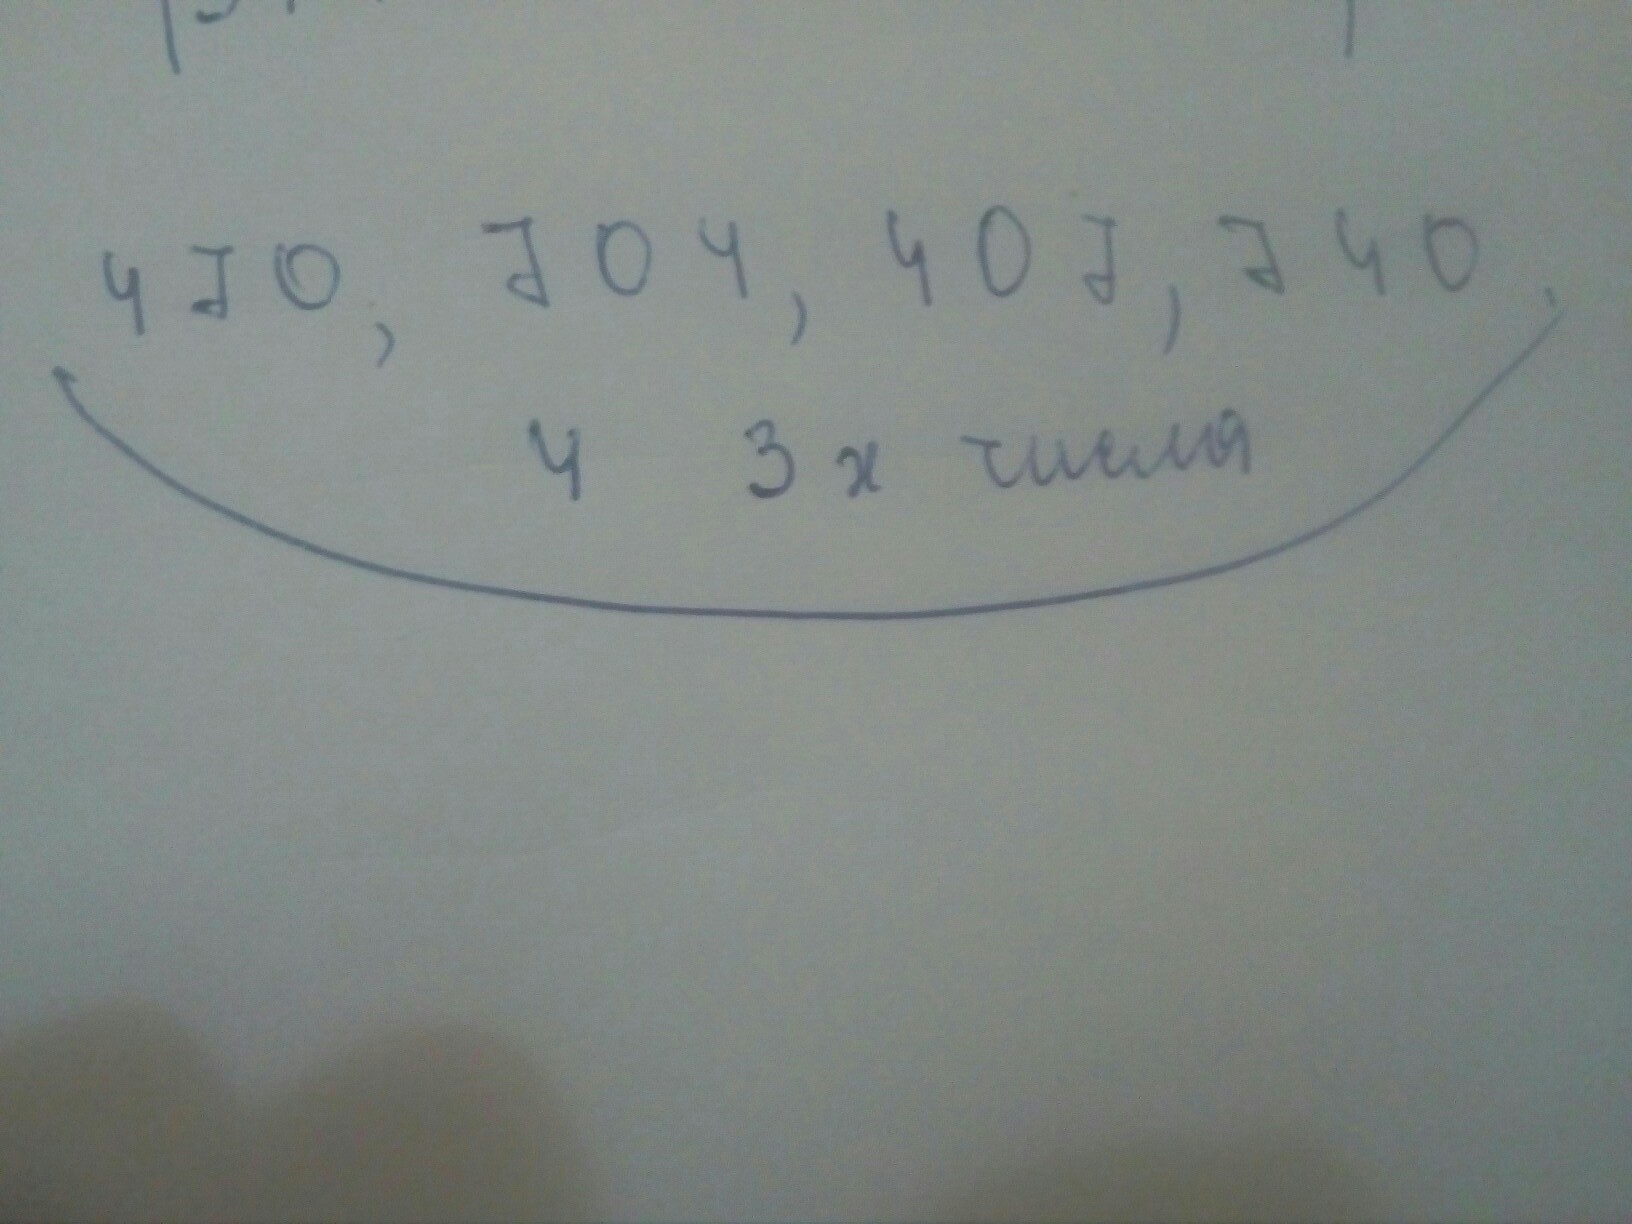 470, 704, 407, 740.
4 3х числа